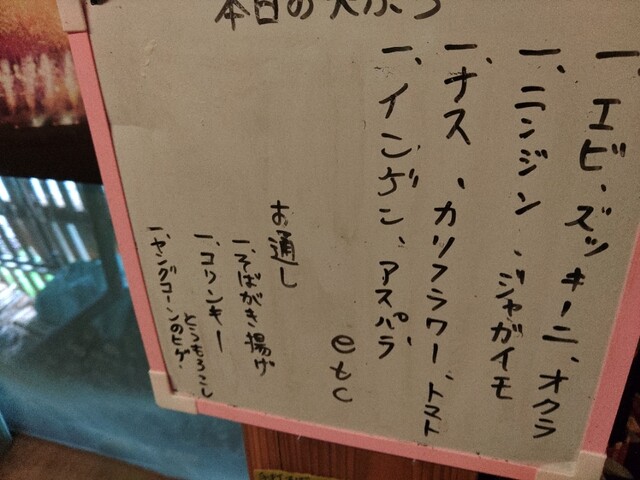 本日の天ぷら
一、エビ、ズッキーニ、オクラ
一、ニンジン、ジャガイモ
一、ナス、カリフラワー、トマト
一、インゲン、アスパラ
etc
お通し
一、そばがき揚げ
一、コリンキー
とうもろこし
一、ヤングコーンのヒゲ